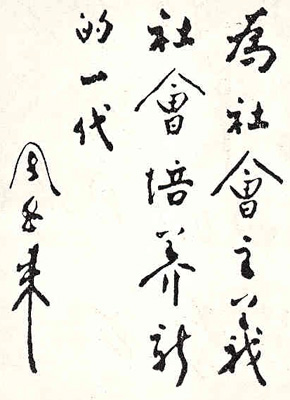 為社會主義
社會培养新
的一代
周恩来